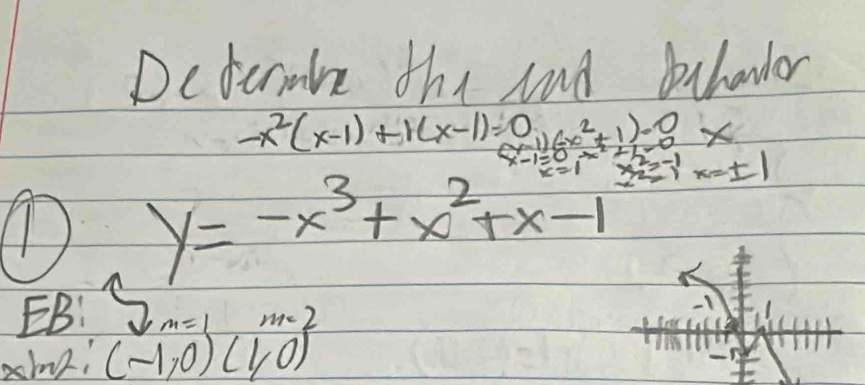 Determine the end behavior
-x²(x-1)+1(x-1)=0 (x-1)(-x²+1)=0 x
x-1=0 -x²+1=0
x=1 -x²=-1 x=±1
① y=-x³+x²+x-1
EB: m=1 m=2
xint: (-1,0) (1,0)
-1 1
-1